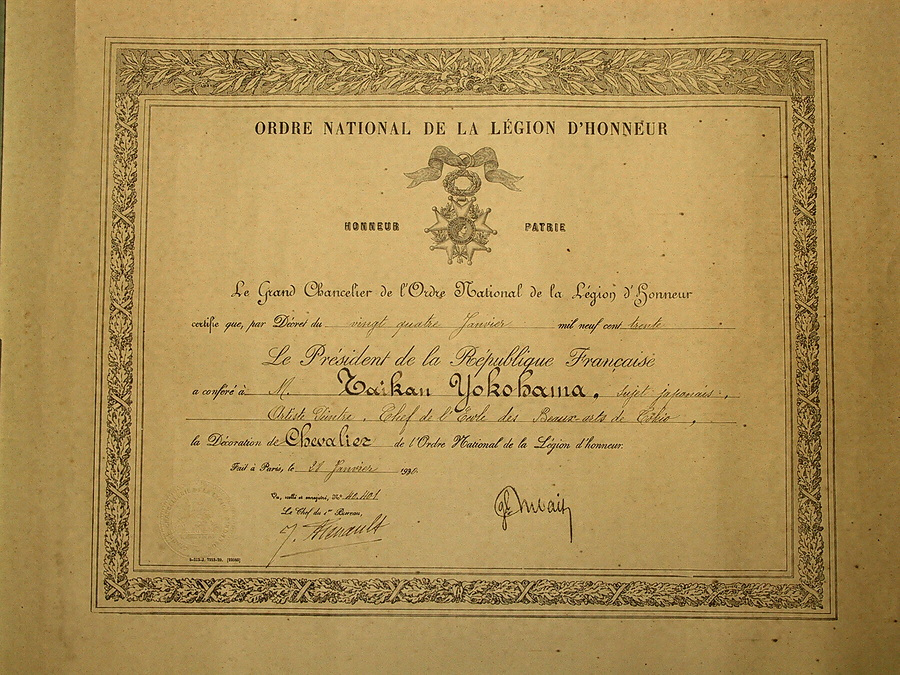 ORDRE NATIONAL DE LA LÉGION D'HONNEUR
HONNEUR PATRIE
Le Grand Chancelier de l'Ordre National de la Légion d'Honneur
certifie que, par Décret du vingt quatre Janvier mil neuf cent trente
Le Président de la République Française
a conféré à M. Taïkan Yokohama, sujet japonais,
Artiste Peintre, Chef de l'Ecole des Beaux-arts de Tokio,
la Décoration de Chevalier de l'Ordre National de la Légion d'honneur.
Fait à Paris, le 28 Janvier 1930
Vu, scellé et enregistré, No 42.401
Le Chef du 1er Bureau,
J. Renault